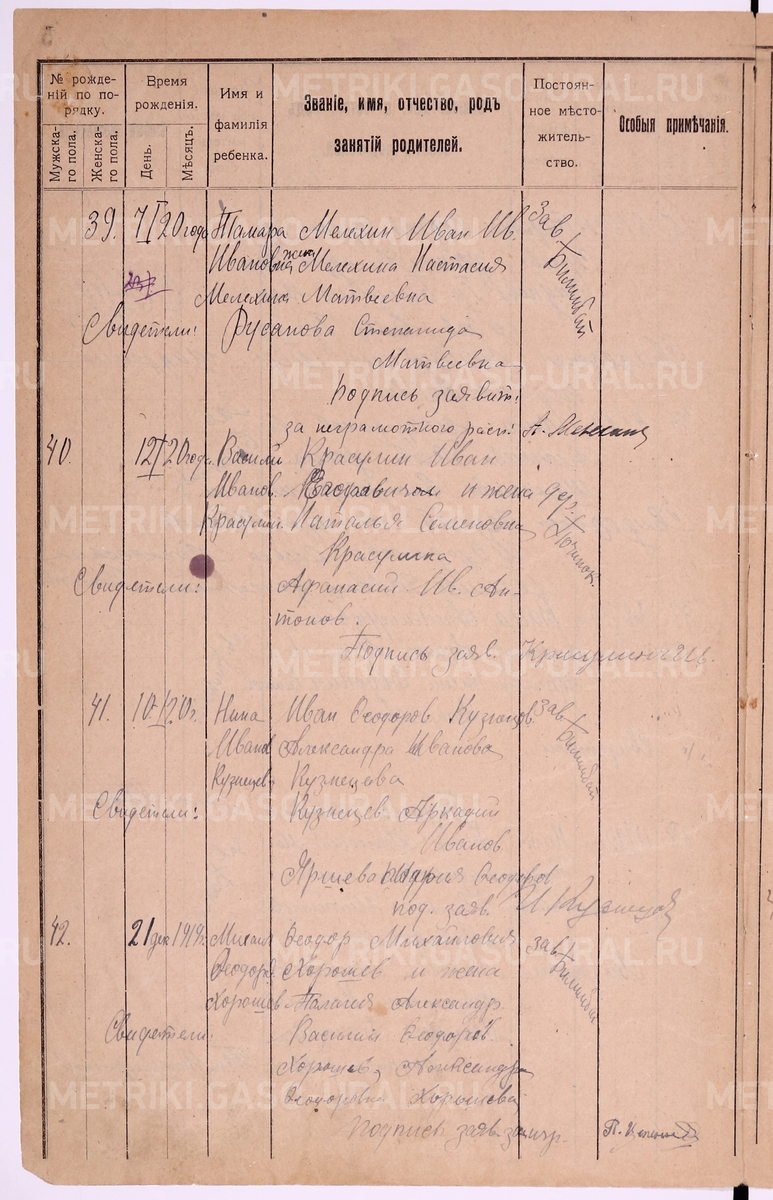 № рожде-
ній по по-
рядку.
Мужска-
го пола.
Женска-
го пола.
Время
рожденія.
День.
Мѣсяцъ.
Имя и
фамилія
ребенка.
Званіе, имя, отчество, родъ
занятій родителей.
Постоян-
ное мѣсто-
житель-
ство.
Особыя примѣчанія.
39. 7/I 20 года Тамара Мелехин Иван Ив. Зав.
Ивановна жена Мелехина Настасия Билимбай
Мелехина Матвеевна
Свидетели: Русанова Степанида
Матвеевна
Подпись заявит.
за неграмотного расп:
40. 12/I 20 года Василий Красулин Иван
Иванов. и жена дер.
Красулин Наталья Семеновна Починок.
Красулина
Свидетели: Афанасий Ив. Ан-
тонов.
Подпись заяв. Красулин
41. 10/I 20 г. Нина Иван Феодоров Кузнецов Зав.
Иванов Александра Иванова Билимбай
Кузнецова Кузнецова
Свидетели: Кузнецев Аркадий
Иванов
Мария Феодоров
под. заяв. И Кузнецов
42. 21 дек 1919 г. Михаил Феодор Михайлович зав.
Феодоров Хорошев и жена Билимбай
Хорошев Палагия Александр
Свидетели: Василий Феодоров.
Хорошев, Александра
Феодоровна Хорошева
Подпись заяв.
METRIKI.GASO-URAL.RU